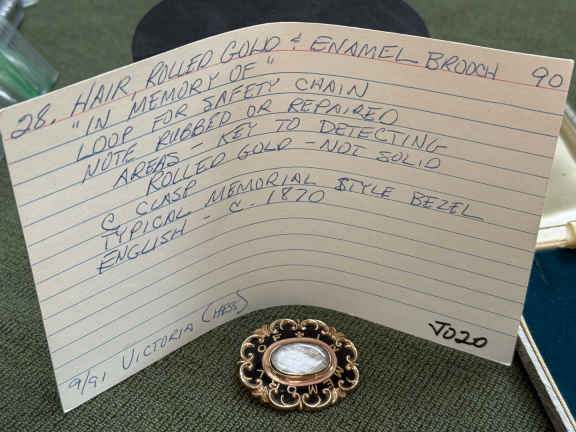 28. HAIR, ROLLED GOLD & ENAMEL BROOCH 90
"IN MEMORY OF"
LOOP FOR SAFETY CHAIN
NOTE RUBBED OR REPAIRED
AREAS - KEY TO DETECTING
ROLLED GOLD - NOT SOLID
C CLASP
TYPICAL MEMORIAL STYLE BEZEL
ENGLISH - C. 1870
9/91 VICTORIA (HESS)
JO20